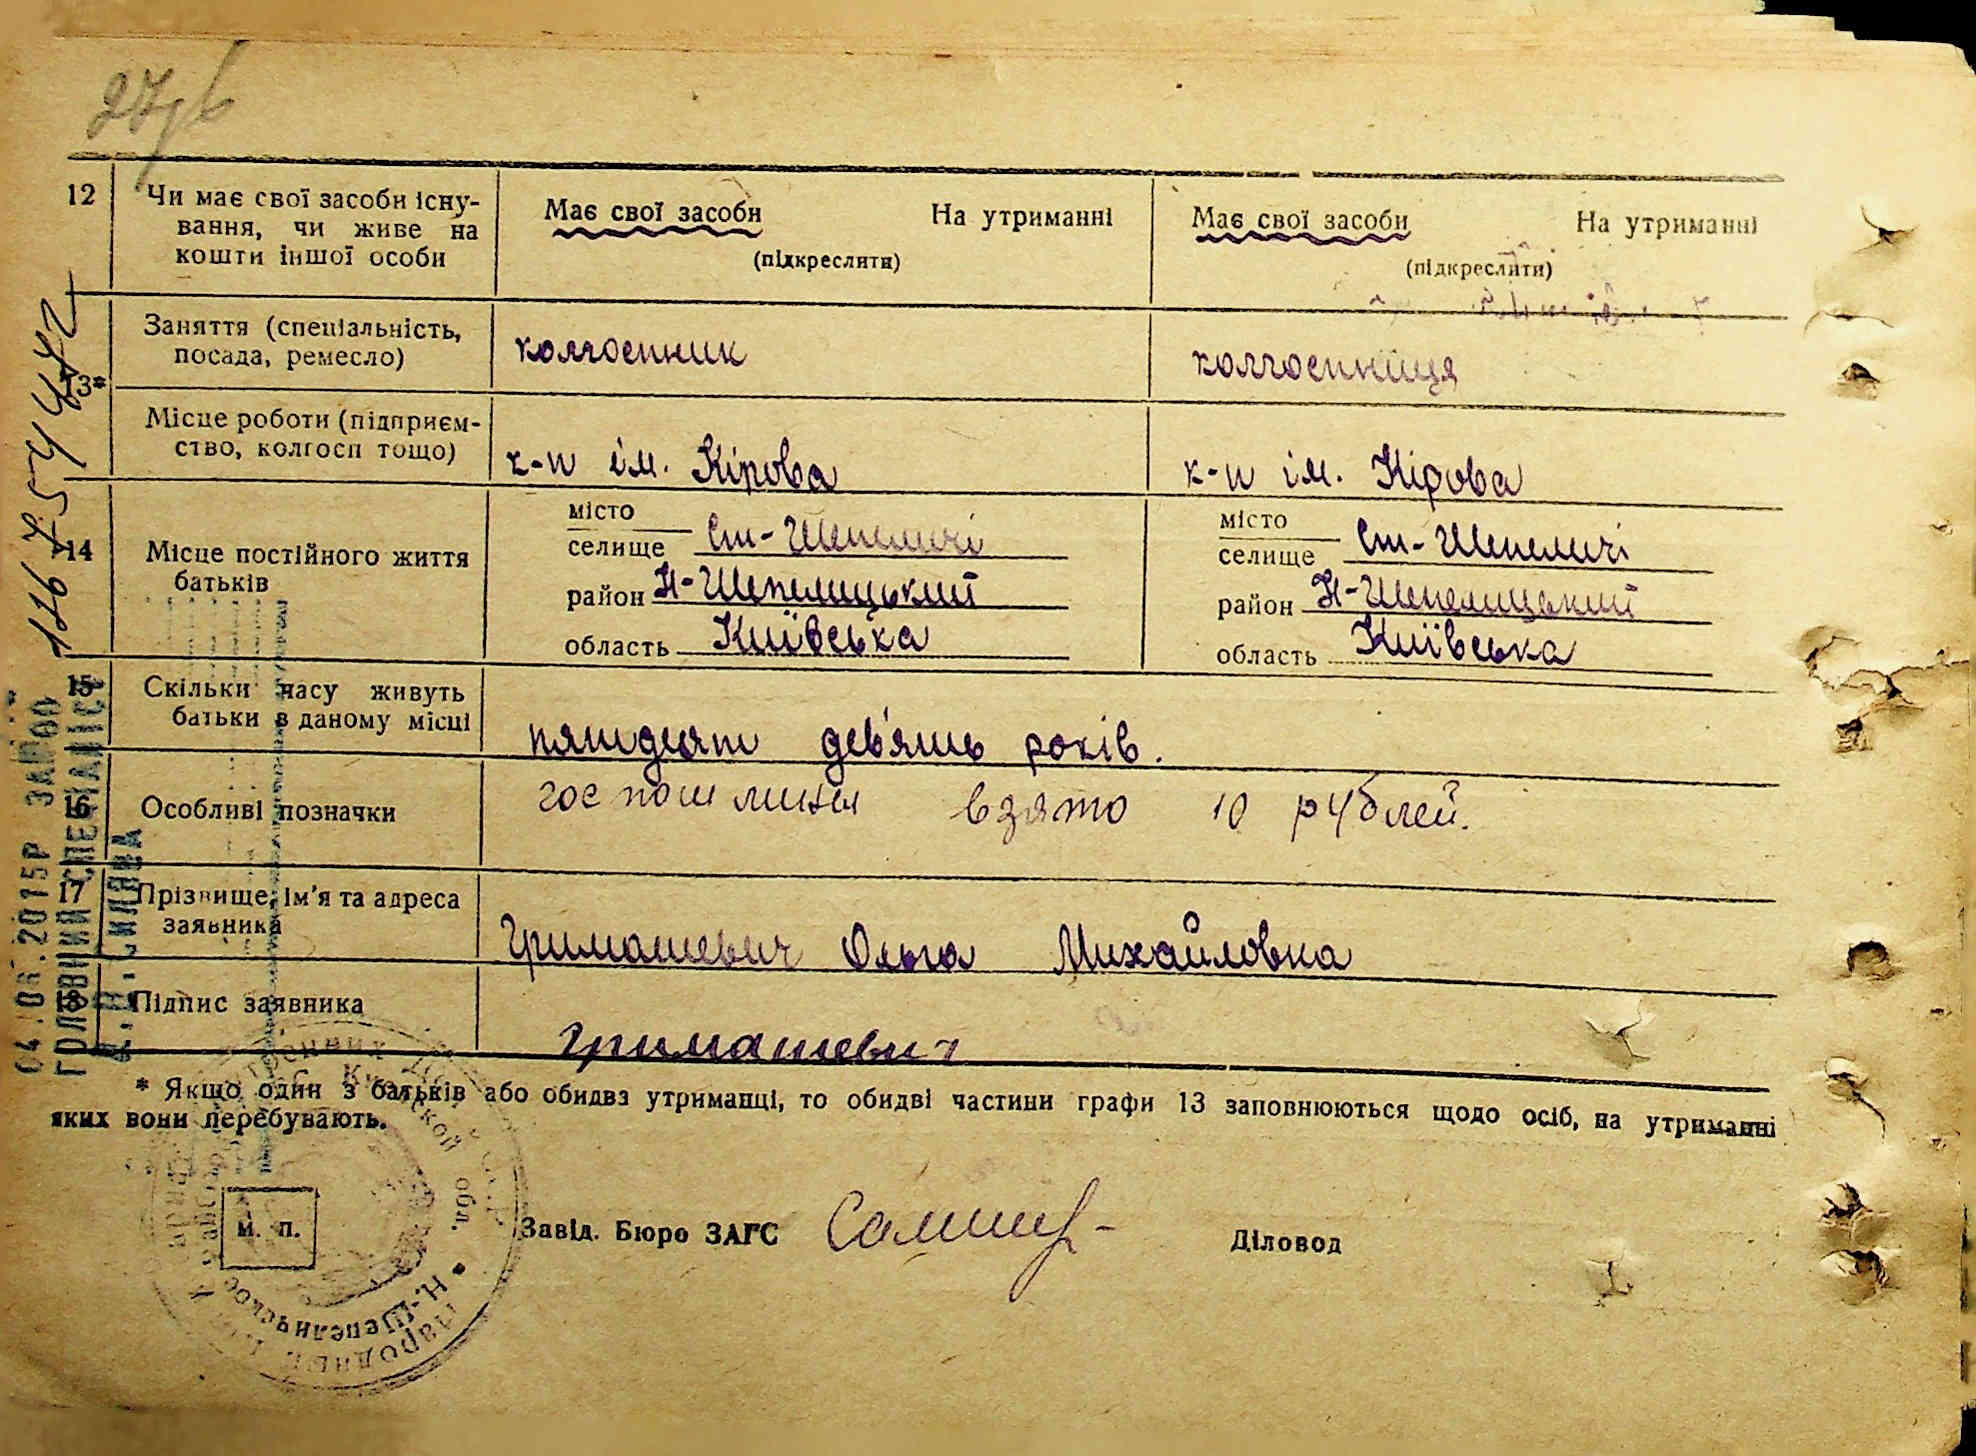 12
Чи має свої засоби існу-
вання, чи живе на
кошти іншої особи
Має свої засоби На утриманні
(підкреслити)
Має свої засоби На утриманні
(підкреслити)
13*
Заняття (спеціальність,
посада, ремесло)
колгоспник
колгоспниця
Місце роботи (підприєм-
ство, колгосп тощо)
к-п ім. Кірова
к-п ім. Кірова
14
Місце постійного життя
батьків
місто
селище Ст-Шепеличі
район Н-Шепелицький
область Київська
місто
селище Ст-Шепеличі
район Н-Шепелицький
область Київська
15
Скільки часу живуть
батьки в даному місці
пятдесят дев'ять років.
16
Особливі позначки
госпошлины взято 10 рублей.
17
Прізвище, ім'я та адреса
заявника
Гримашевич Ольга Михайловна
18
Підпис заявника
Гримашевич
* Якщо один з батьків або обидва утриманці, то обидві частини графи 13 заповнюються щодо осіб, на утриманні
яких вони перебувають.
м. п.
Завід. Бюро ЗАГС
Діловод
Н.-Шепеличское
обл.
ГОЛОВНИЙ СПЕЦІАЛІСТ